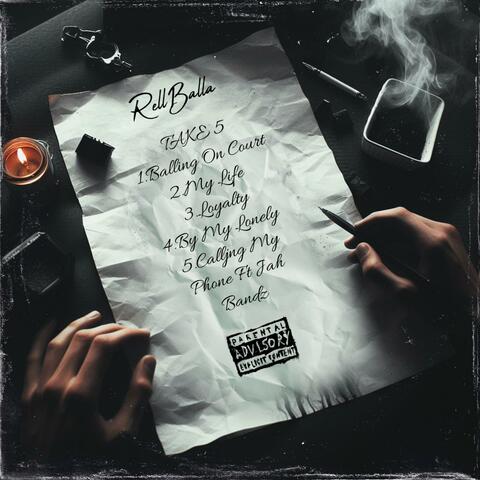 Rell Balla
TAKE 5
1.Balling On Court
2.My Life
3.Loyalty
4.By My Lonely
5.Calljng My
Phone Ft Jah
Bandz
PARENTAL
ADVISORY
EXPLICIT CONTENT